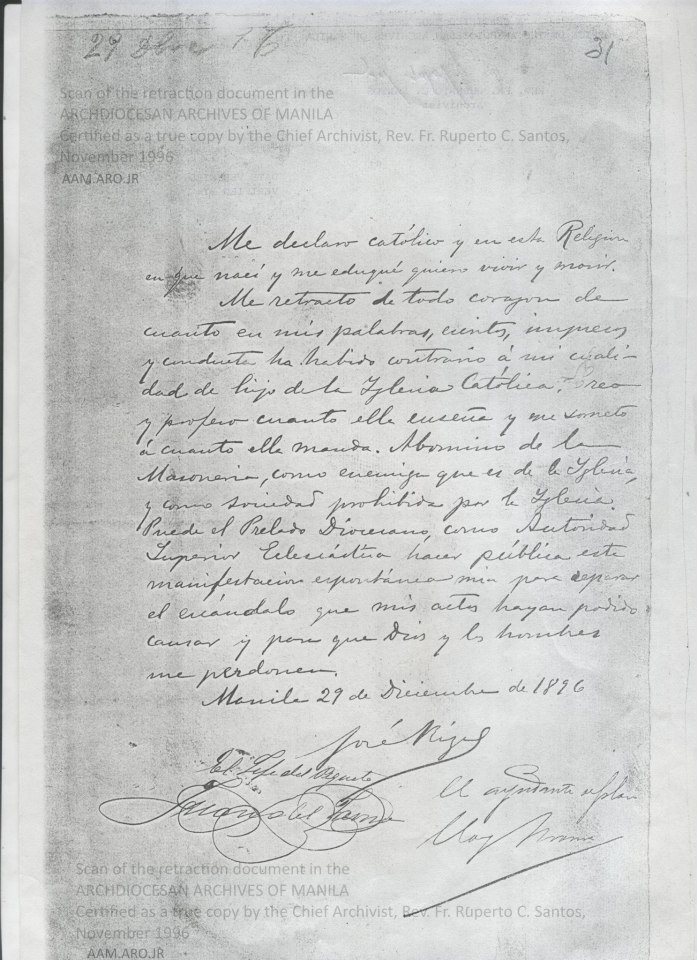 31
Scan of the retraction document in the
ARCHDIOCESAN ARCHIVES OF MANILA
Certified as a true copy by the Chief Archivist, Rev. Fr. Ruperto C. Santos,
November 1996
AAM.ARO.JR
Me declaro católico y en esta Religion
en que nací y me eduqué quiero vivir y morir.
Me retracto de todo corazon de
cuanto en mis palabras, escritos, impresos
y conducta ha habido contrario á mi cuali-
dad de hijo de la Iglesia Católica. Creo
y profeso cuanto ella enseña y me someto
á cuanto ella manda. Abomino de la
Masoneria, como enemiga que es de la Iglesia,
y como sociedad prohibida por la Iglesia.
Puede el Prelado Diocesano, como Autoridad
Superior Eclesiástica hacer pública esta
manifestacion espontánea mia para reparar
el escándalo que mis actos hayan podido
causar y para que Dios y los hombres
me perdonen.
Manila 29 de Diciembre de 1896
José Rizal
El Jefe del Piquete
Juan del Fresno
El ayudante de plaza
Eloy Moure
Scan of the retraction document in the
ARCHDIOCESAN ARCHIVES OF MANILA
Certified as a true copy by the Chief Archivist, Rev. Fr. Ruperto C. Santos,
November 1996
AAM.ARO.JR